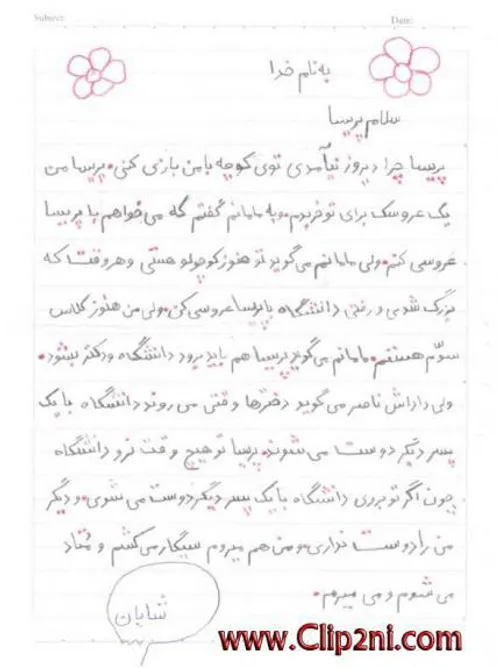 Subject:
Date:
به نام خدا
سلام پریسا
پریسا چرا دیروز نیآمدی توی کوچه با من بازی کنی. پریسا من
یک عروسک برای تو خریدم. و به مامانم گفتم که می خواهم با پریسا
عروسی کنم. ولی مامانم می گوید تو هنوز کوچولو هستی و هر وقت که
بزرگ شدی و رفتی دانشگاه با پریسا عروسی کن. ولی من هنوز کلاس
سوّم هستم. مامانم می گوید پریسا هم باید برود دانشگاه و دکتر بشود.
ولی داداش ناصر می گوید دخترها وقتی می روند دانشگاه با یک
پسر دیگر دوست می شوند. پرسا تو هیچ وقت نرو دانشگاه
چون اگر تو بروی دانشگاه با یک پسر دیگر دوست می شوی. و دیگر
من را دوست نداری. و من هم میروم سیگار می کشم و مُتاد
می شوم و می میرم.
شایان
www.Clip2ni.com